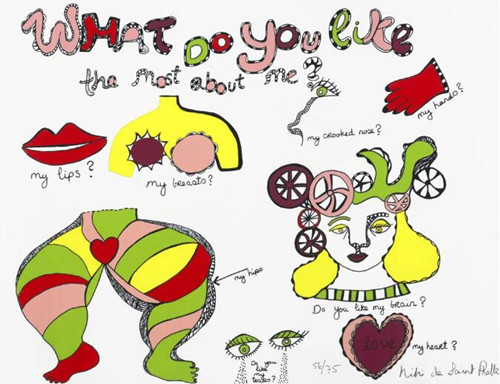 WHAT DO YOU LiKE
the most about me?
my lips?
my breasts?
my crooked nose?
my hands?
my hips
Do you like my brain?
Do you
like
my
tears?
56/75
LOVE
my heart?
Niki de Saint Phalle